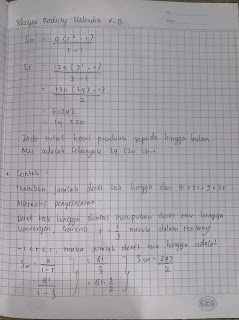 X-B
Sn = a (rⁿ - 1)
r - 1
S5 = 120 (3⁵ - 1)
3 - 1
= 120 (243 - 1)
2
=
= 14 520
Jadi total hasil produksi sepeda hingga bulan
Mei adalah sebanyak 14 520 unit
Contoh :
Tentukan jumlah deret tak hingga dari 81 + 27 + 9 + 3 +
Alternatif penyelesaian
Deret tak hingga diatas merupakan deret tak hingga
konvergen, karena r = 1/3 masuk dalam rentang
-1 < r < 1, maka jumlah deret tak hingga adalah
S∞ = a / 1 - r = 81 / 2/3 S∞ = 243 / 2
= 81 / 1 - 1/3 = 81 . 3/2